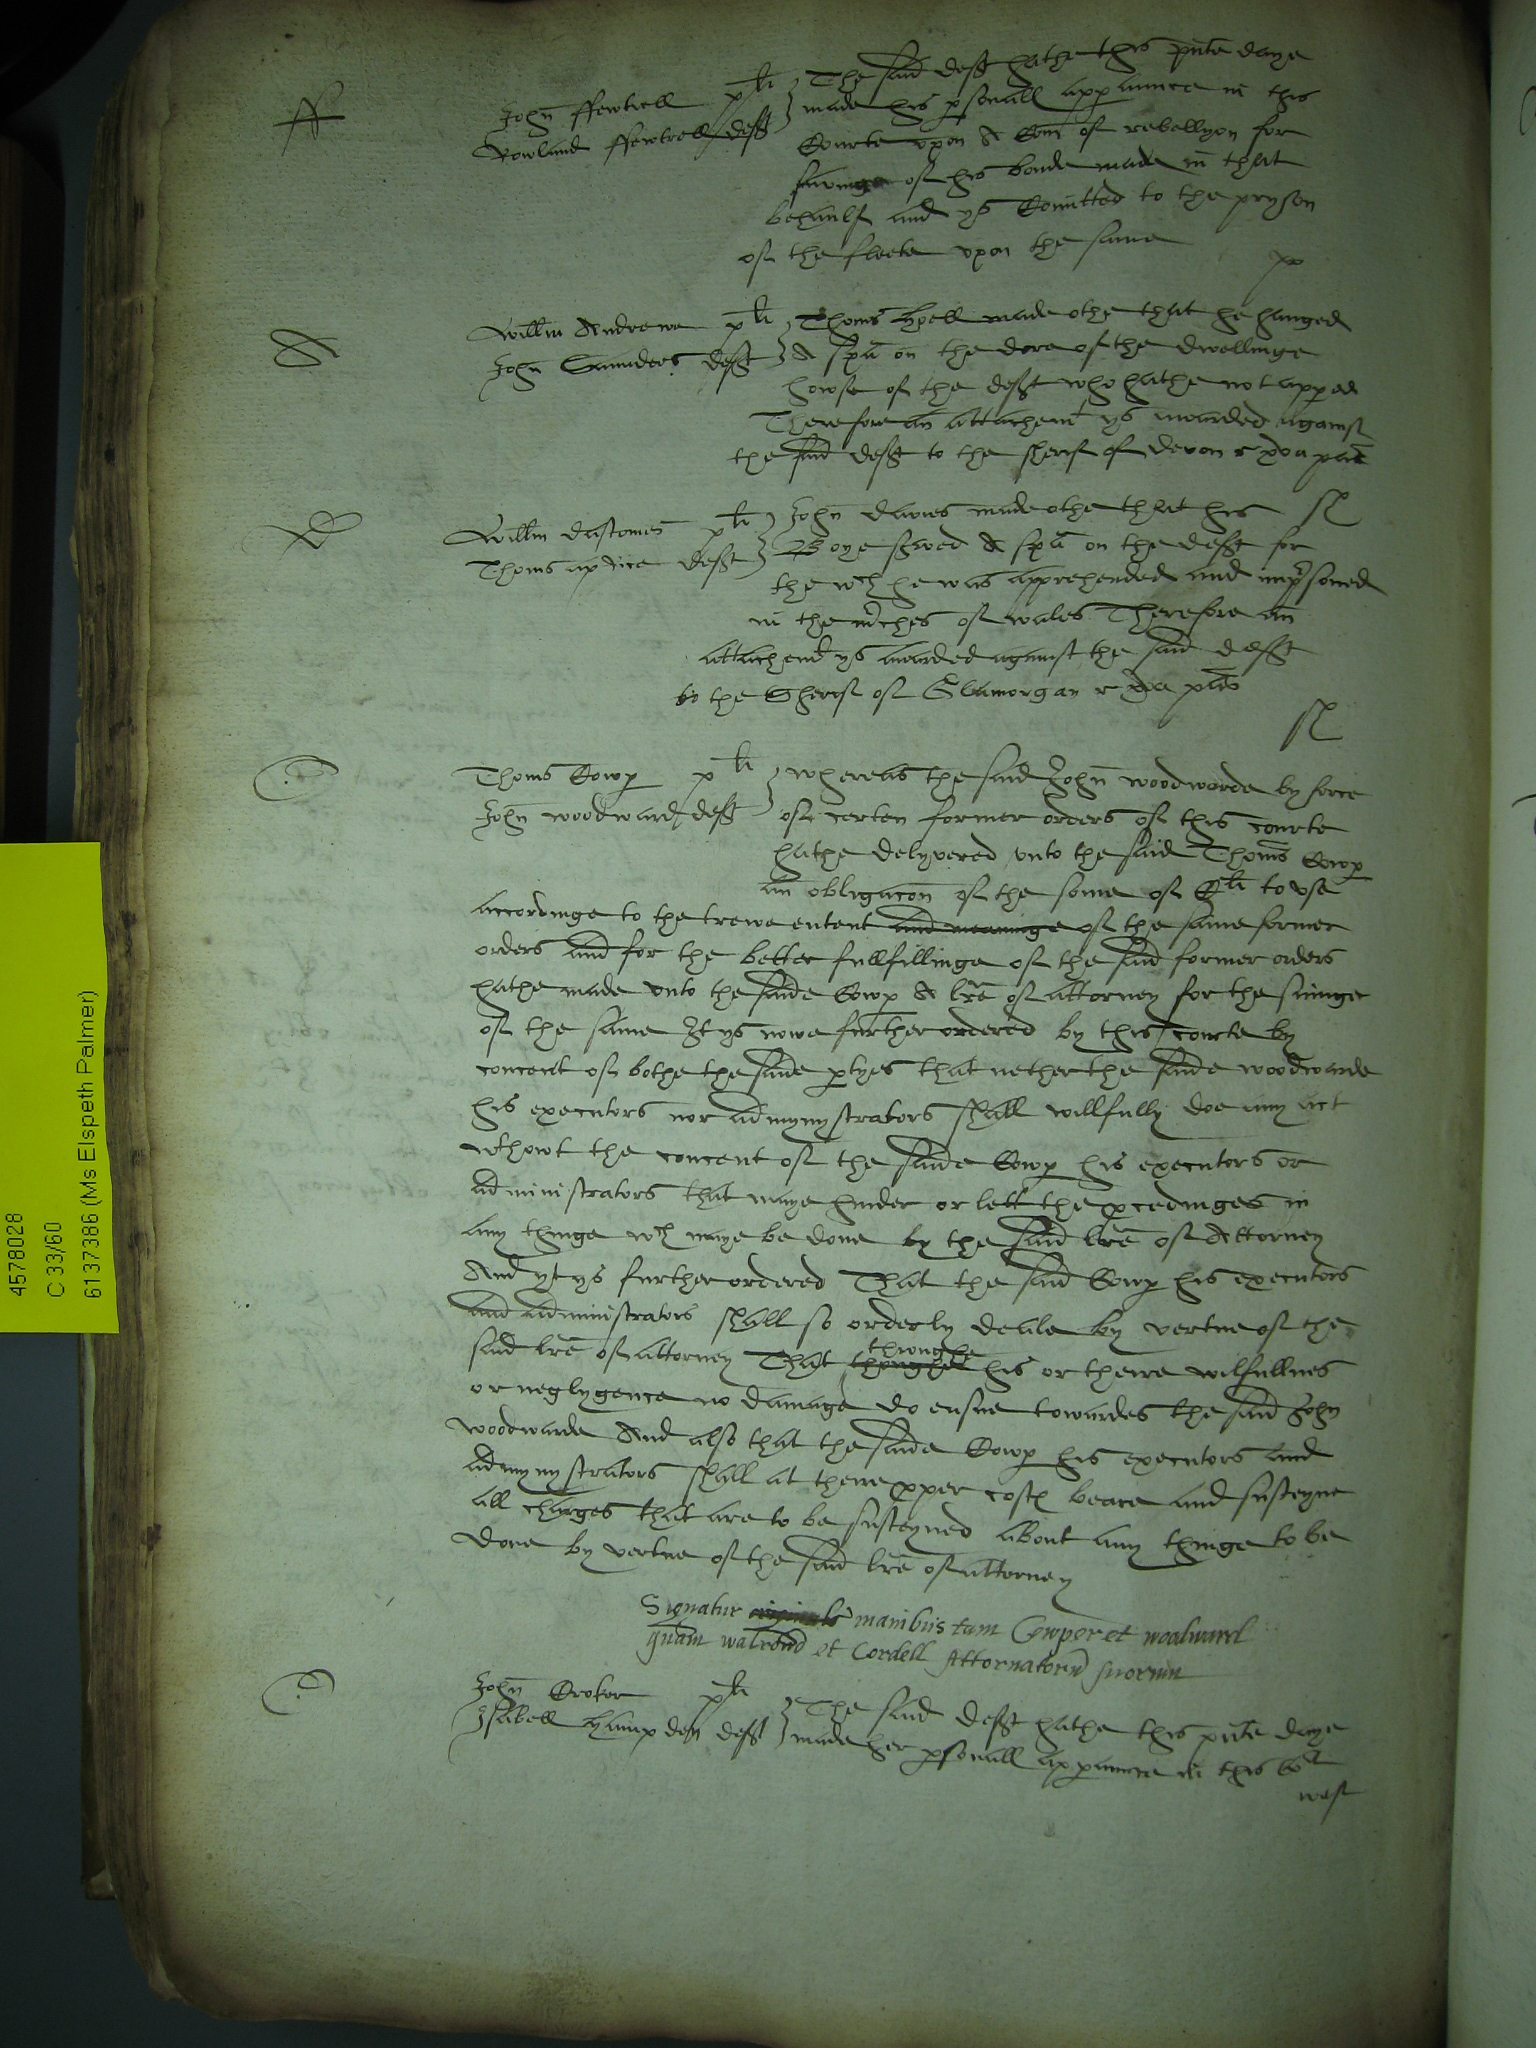 ff
John ffewtrell pl
Rowland ffewtrell deft
The said deft hathe this pnte daye
made his psonall apparaunce in this
Courte upon A Com of rebellyon for
savinge of his bonde made in that
behaulf and ys Comitted to the pryson
of the fleete upon the same
A
Willm Andrewe pl
John Saunders deft
Thoms hyell made othe that he hanged
A spa on the dore of the dwellinge
howse of the deft who hathe not appered
Therefore an attachemt ys awarded against
the said deft to the sherif of devon
D
Willm dastomes pl
Thoms ap rice deft
John davies made othe that his
Boye served A spa on the deft for
the wch he was apprehended and imprsoned
in the mrches of wales Therefore an
attachemt ys awarded against the said deft
to the Sherif of Glamorgan
C
Thoms Cowp pl
John woodward deft
whereas the said John woodwarde by force
of certen former orders of this courte
hathe delyvered unto the said Thoms Cowp
an obligacon of the some of Cli to use
accordinge to the trewe entent and meaninge of the same former
orders and for the better fullfillinge of the said former orders
hathe made unto the saide Cowp A lre of attorney for the suinge
of the same It ys nowe further ordered by this courte by
concent of bothe the saide ptyes that nether the saide woodwarde
his executors nor admynystrators shall willfully doe any act
wthowt the concent of the saide Cowp his executors or
administrators that maye hinder or lett the pcedinges in
any thinge wch maye be done by the said lre of Attorney
And yt ys further ordered That the said Cowp his executors
and administrators shall so orderly deale by vertue of the
said lre of attorney That thoughe throughe his or theire wilfullnes
or neglygence no damage do ensue towardes the said John
woodwarde And also that the saide Cowp his executors and
admynystrators shall at theire pper costs beare and susteyne
all charges that are to be susteyned about any thinge to be
done by vertue of the said lre of attorney
Signatur manibus tam Cowper et woodward
quam walrond et Cordell Attornatoru suorum
C
John Croker pl
Isabell hampden deft
The said deft hathe this pnte daye
made her psonall apparaunce in this Cot
4578028
C 33/60
6137386 (Ms Elspeth Palmer)